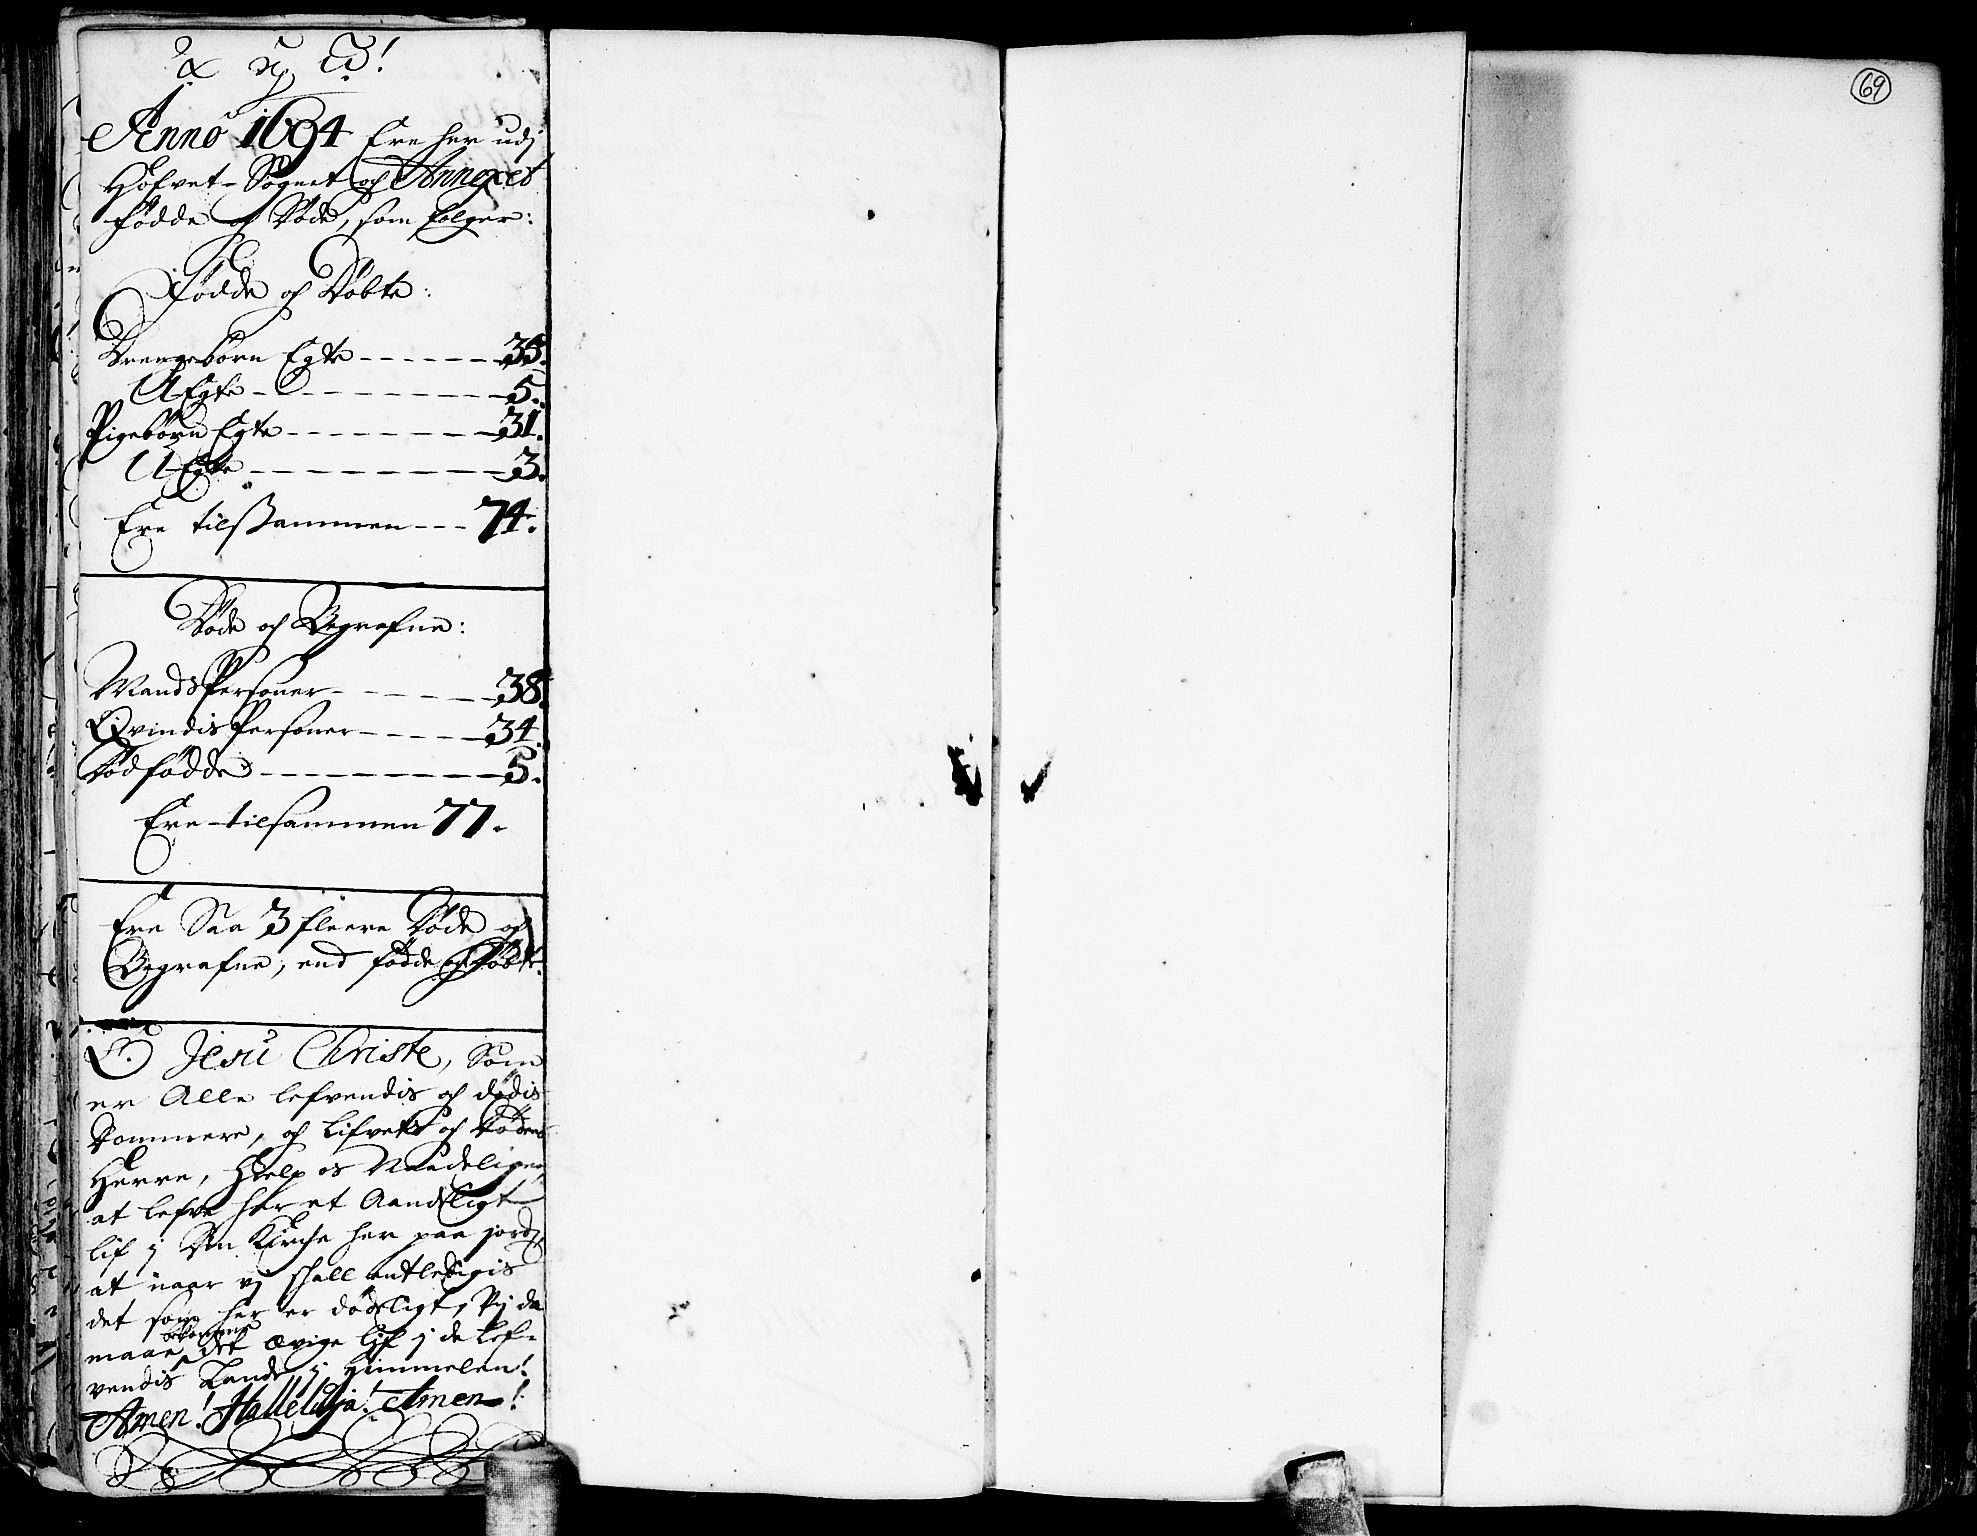 Anno 1694 Ere her udj
Hofvet-Sognet och Annexet
Fødde og Døde, som følger:
Fødde og Døbte:
Drengebørn Egte 35.
UEgte 5.
Pigebørn Egte 31.
UEgte 3.
Ere tilssammen 74.
Døde og Begrafne:
MandsPersoner 38.
QvindisPersoner 34.
Dødfødde 5.
Ere tilsammen 77.
Ere Saa 3 fleere Døde og
Begrafne, end fødde og Døbte.
O Jesu Christe, Som
er Alle lefvendis og dødis
Dommere, og Lifvets og Dødens
Herre, Hielp os Naadeligen,
at lefve her et Aandeligt
lif j Din Kirche her paa jord,
at naar vj skall entledigis
det som her er dødeligt, Vj da
maae bekomme det ævige lif j de Lef-
vendis Lande j Himmelen!
Amen! Halleluja! Amen!
69